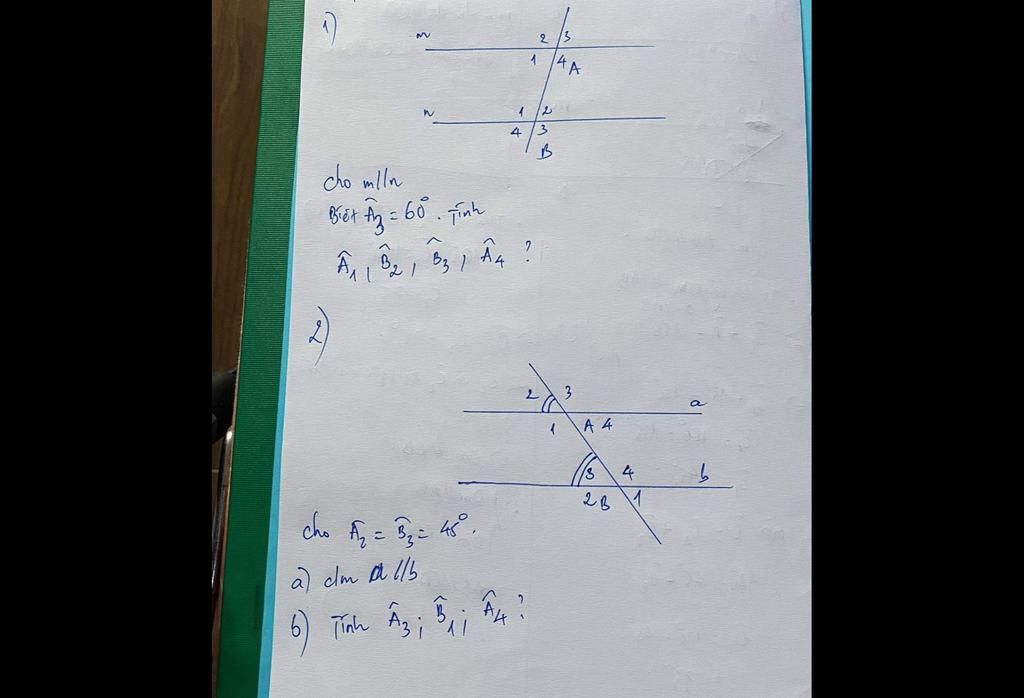 1)
m
2 3
1 4 A
n
1 2
4 3
B
cho m//n
Biết Â3 = 60°. Tính
Â1, B̂2, B̂3, Â4 ?
2)
2 3 a
1 A 4
3 4 b
2 B 1
cho Â2 = B̂3 = 45°.
a) cm a//b
b) Tính Â3; B̂1; Â4 ?